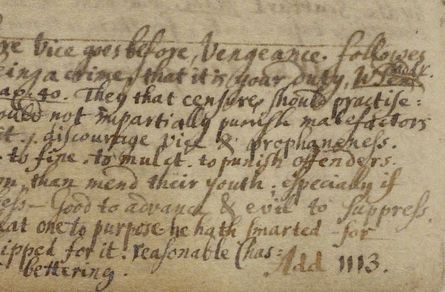 re Vice goes before, Vengeance. follows
eing a crime, that it is your duty, W
ap. 40. They that censure, should practise:
ould not impartially punish malefactors
it; discourage vice & prophaneness.
. to fine. to mulct. to punish offenders.
om than mend their youth; especially if
ess – Good to advance & evil to suppress.
eat one to purpose. he hath smarted – for
ipped for it. reasonable Chas:
bettering. Add 1113.